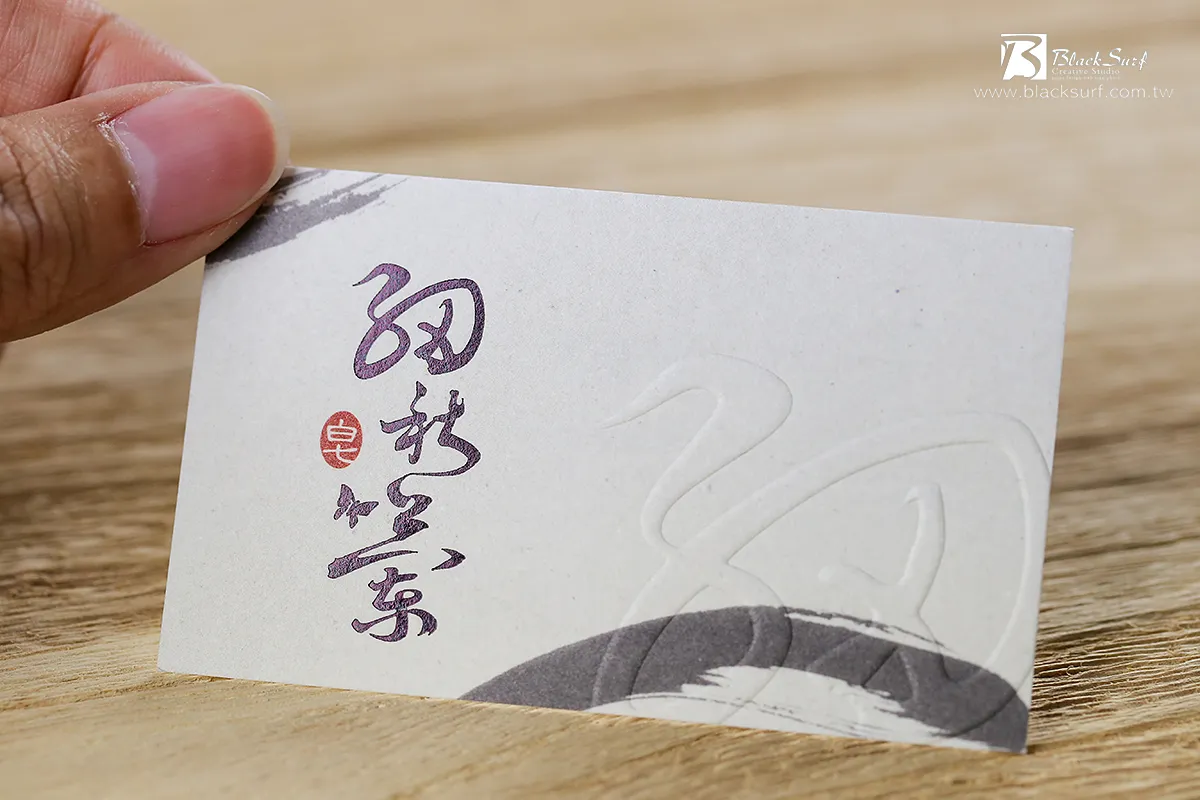 紉秋蘭
皂
BlackSurf
Creative Studio
www.blacksurf.com.tw